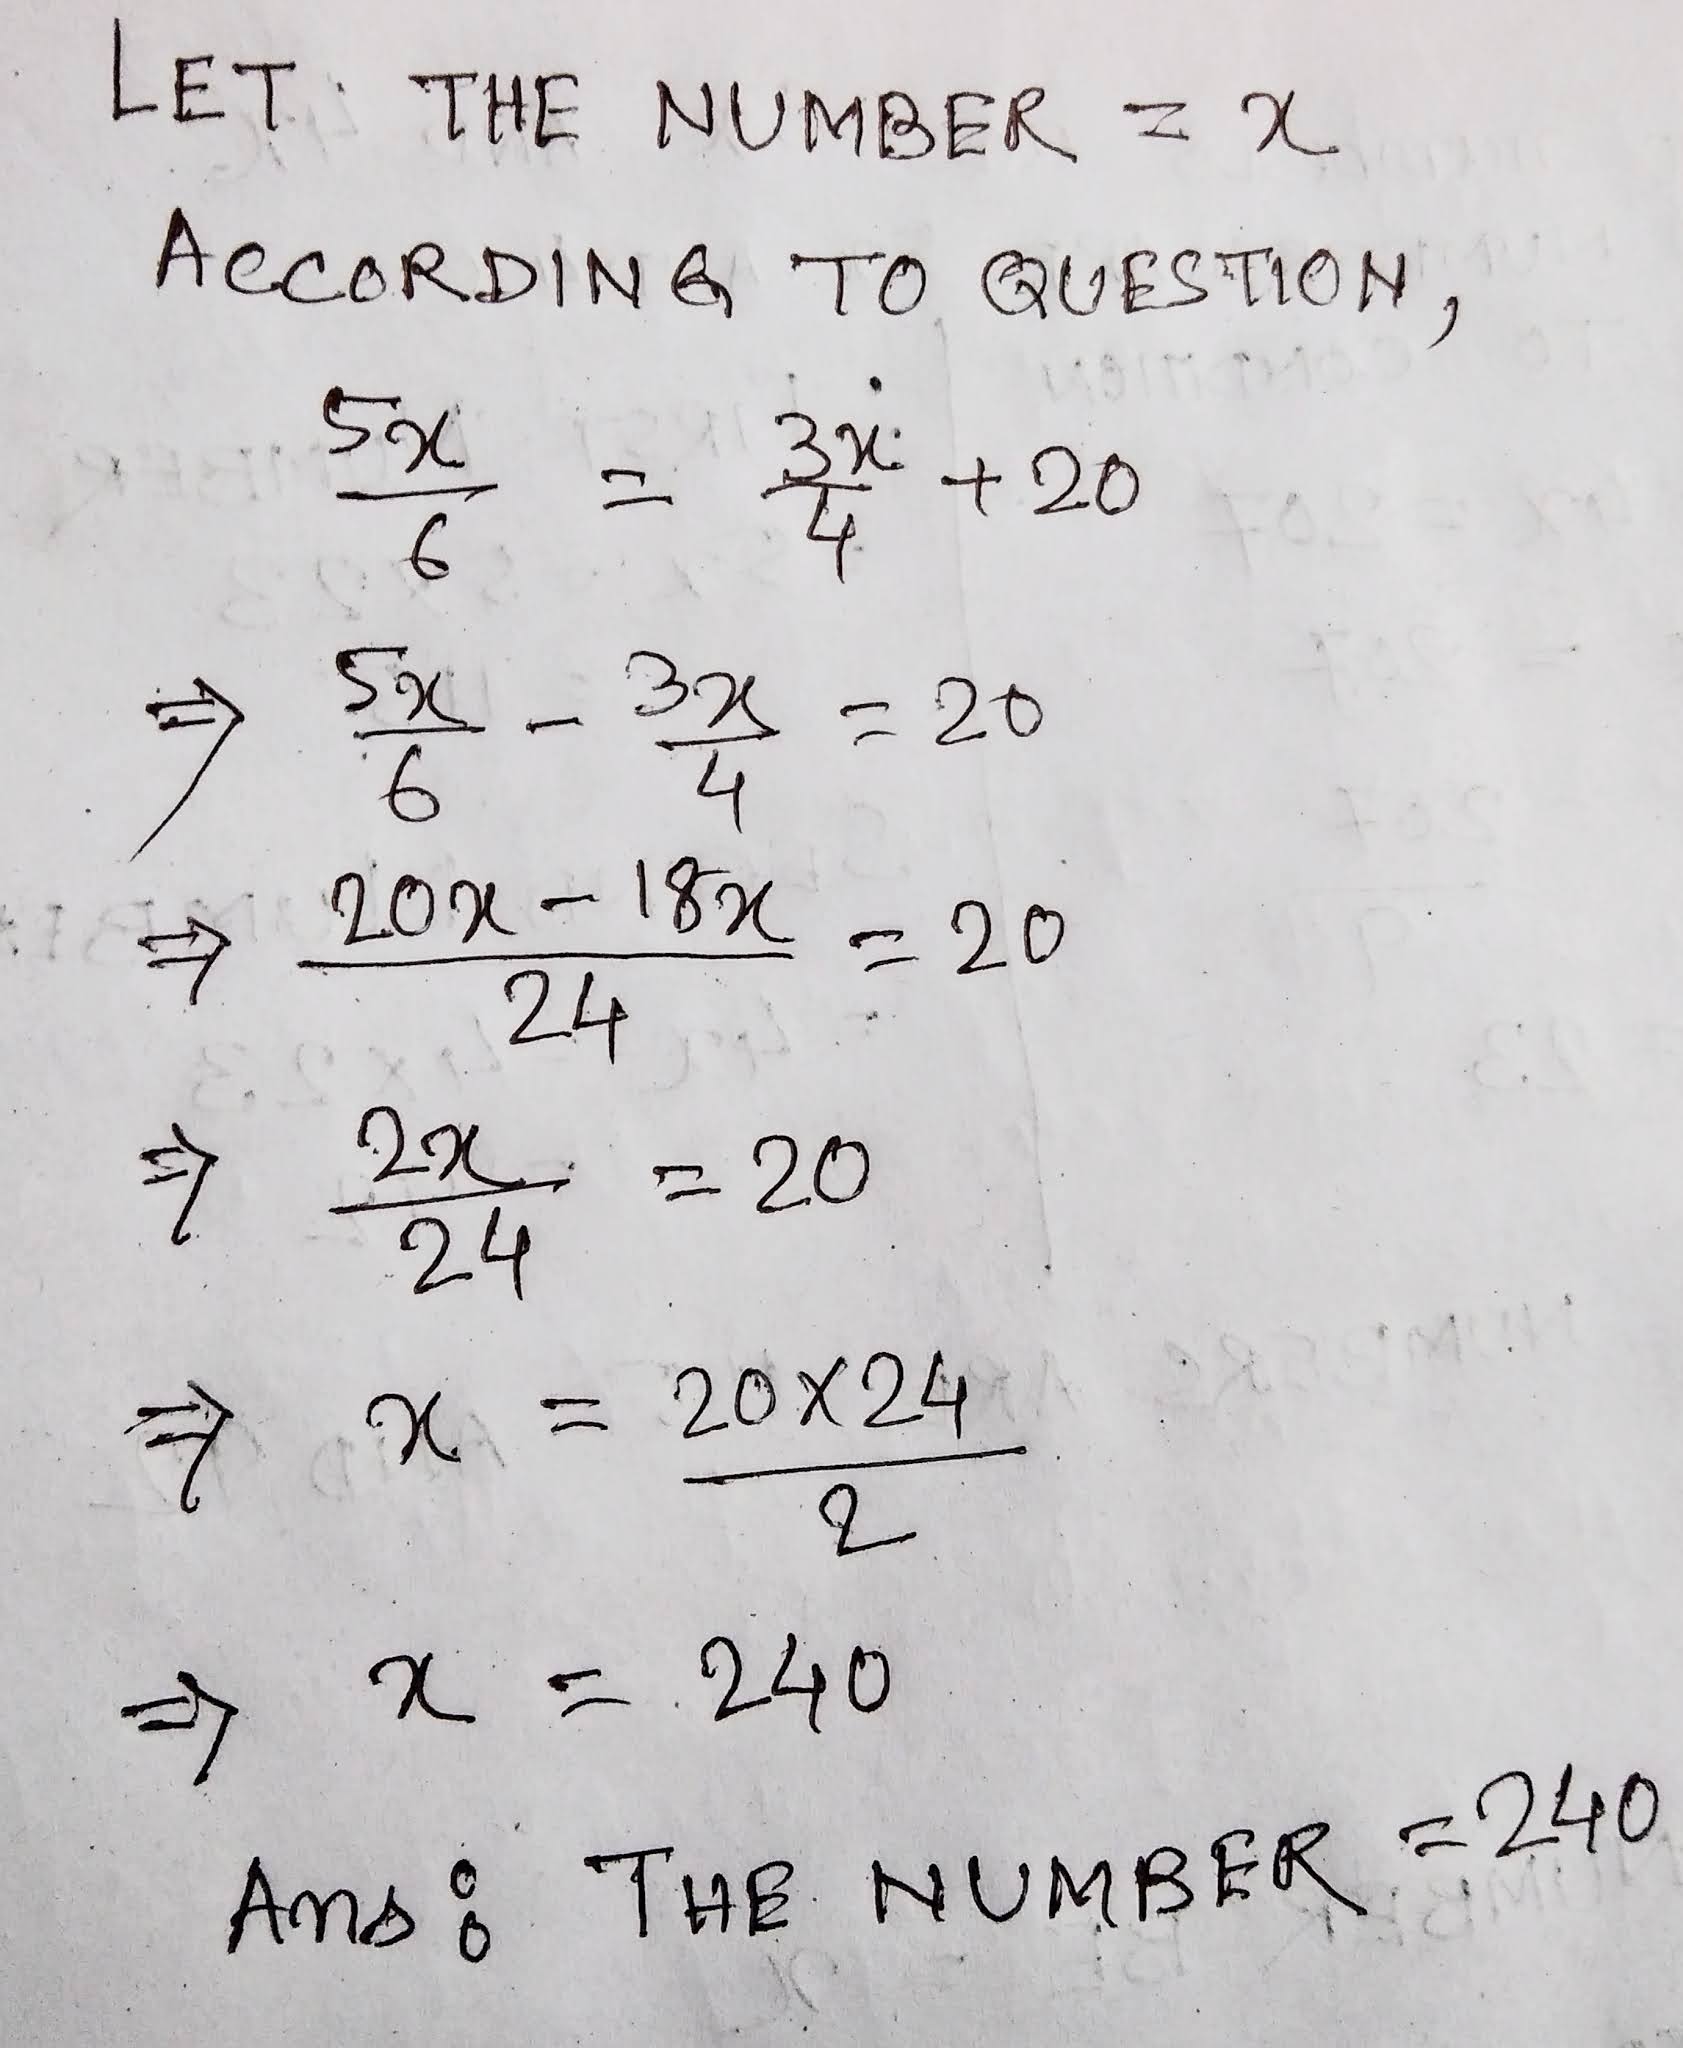 LET THE NUMBER = x
ACCORDING TO QUESTION,
5x/6 = 3x/4 + 20
⇒ 5x/6 - 3x/4 = 20
⇒ 20x - 18x/24 = 20
⇒ 2x/24 = 20
⇒ x = 20×24/2
⇒ x = 240
Ans: THE NUMBER = 240